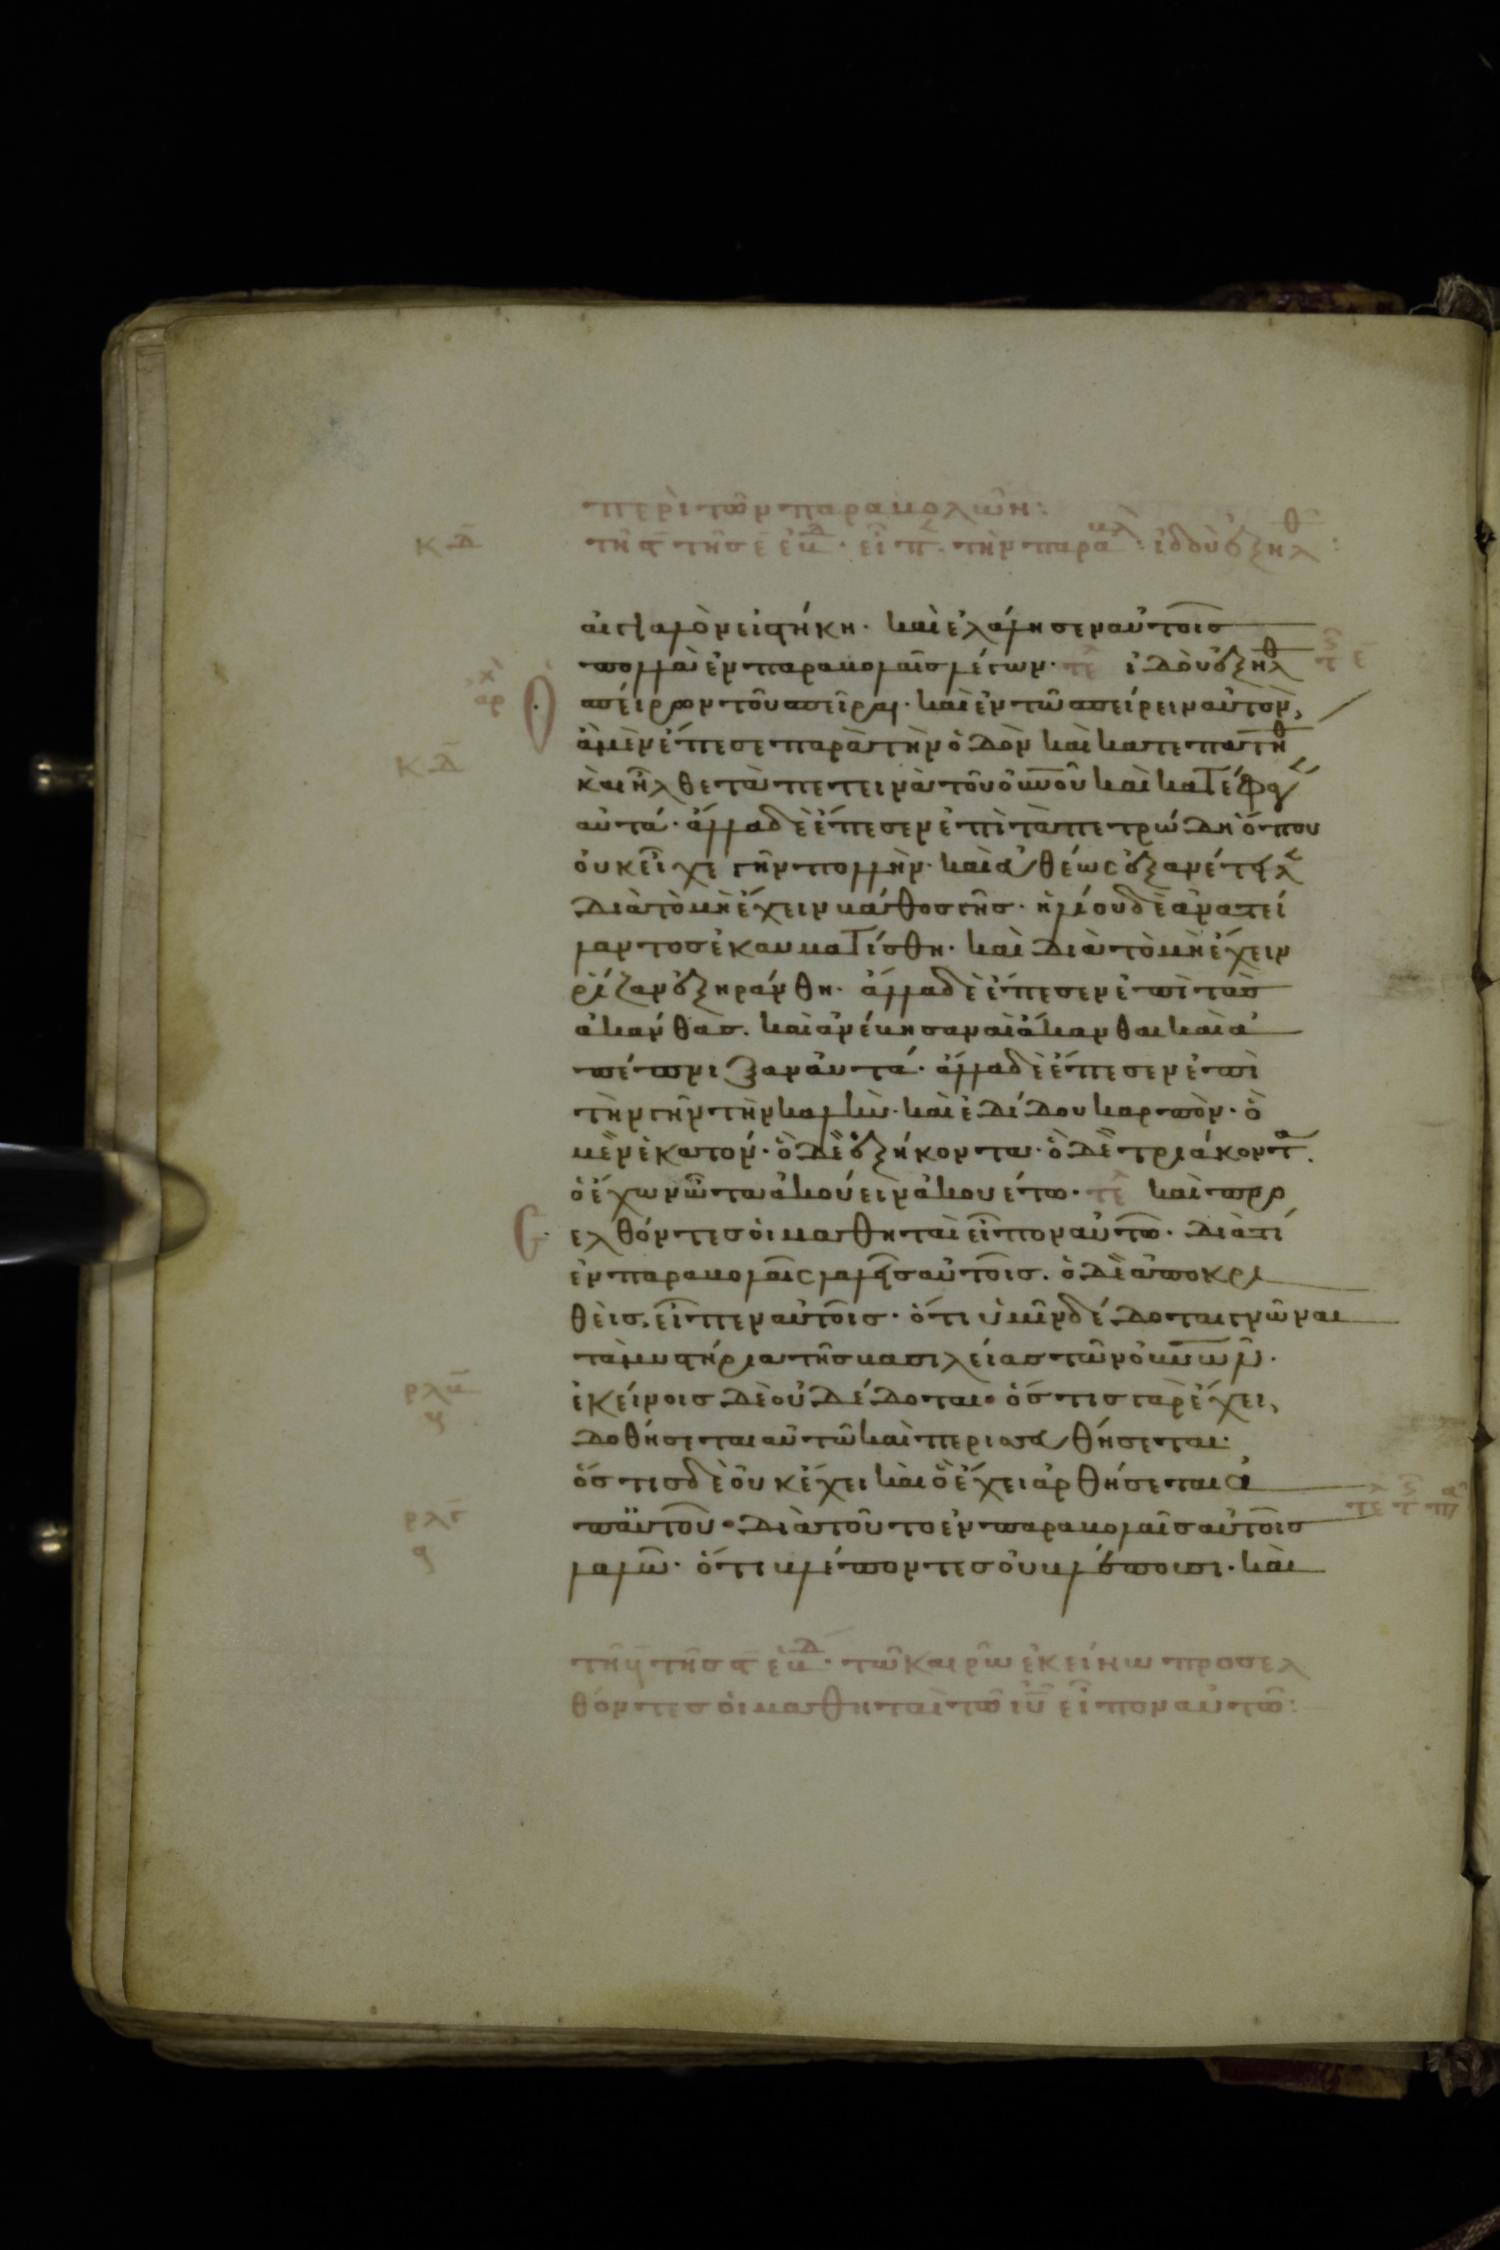 περὶ τῶν παραβολῶν:
κδ̄
τῆ ϛ̄ τῆς ε̄ ἑβδ· εἶπ. τὴν παραβλ: ἰδοὺ ἐξῆλθ:
αἰγιαλὸν εἰστήκη· καὶ ἐλάλησεν αὐτοῖς
πολλὰ ἐν παραβολαῖς λέγων· τε ἰδοὺ ἐξῆλθ
ἀρχ
ὁ σπείρων τοῦ σπεῖραι· καὶ ἐν τῶ σπείρειν αὐτὸν,
κδ̄
ἃ μὲν ἔπεσε παρὰ τὴν ὁδὸν καὶ κατεπατήθ
καὶ ἦλθε τὰ πετεινὰ τοῦ οὐνοῦ καὶ κατέφαγ
αὐτά· ἄλλα δὲ ἔπεσεν ἐπὶ τὰ πετρώδη ὅπου
οὐκ εἶχε γῆν πολλὴν· καὶ εὐθέως ἐξανέτειλ
διὰ τὸ μὴ ἔχειν βάθος γῆς· ἡλίου δὲ ἀνατεί
λαντος ἐκαυματίσθη· καὶ διὰ τὸ μὴ ἔχειν
ῥίζαν ἐξηράνθη· ἄλλα δὲ ἔπεσεν ἐπὶ τὰς
ἀκάνθας. καὶ ἀνέβησαν αἱ ἄκανθαι καὶ ἀ
πέπνιξαν αὐτά· ἄλλα δὲ ἔπεσεν ἐπὶ
τὴν γῆν τὴν καλὴν· καὶ ἐδίδου καρπὸν· ὃ
μὲν ἑκατόν· ὃ δὲ ἑξήκοντα· ὃ δὲ τριάκοντα.
ὁ ἔχων ὦτα ἀκούειν ἀκουέτω· τε καὶ προ
ελθόντες οἱ μαθηταὶ εἶπον αὐτῶ· διατί
ἐν παραβολαῖς λαλεῖς αὐτοῖς. ὁ δὲ ἀποκρι
θεὶς, εἶπεν αὐτοῖς· ὅτι ὑμῖν δέδοται γνῶναι
τὰ μυστήρια τῆς βασιλείας τῶν οὐνῶν·
ρλβ
ἐκείνοις δὲ οὐ δέδοται· ὅστις γὰρ ἔχει,
δοθήσεται αὐτῶ καὶ περισσευθήσεται·
ὅστις δὲ οὐκ ἔχει καὶ ὃ ἔχει ἀρθήσεται ἀ
ρλγ
π αὐτοῦ· διὰ τοῦτο ἐν παραβολαῖς αὐτοῖς
λαλῶ· ὅτι βλέποντες οὐ βλέπουσι· καὶ
τῆ τῆς ϛ̄ ἑβδ· τῶ καιρῶ ἐκείνω προσελ
θόντες οἱ μαθηταὶ τῶ ιῦ εἶπον αὐτῶ: